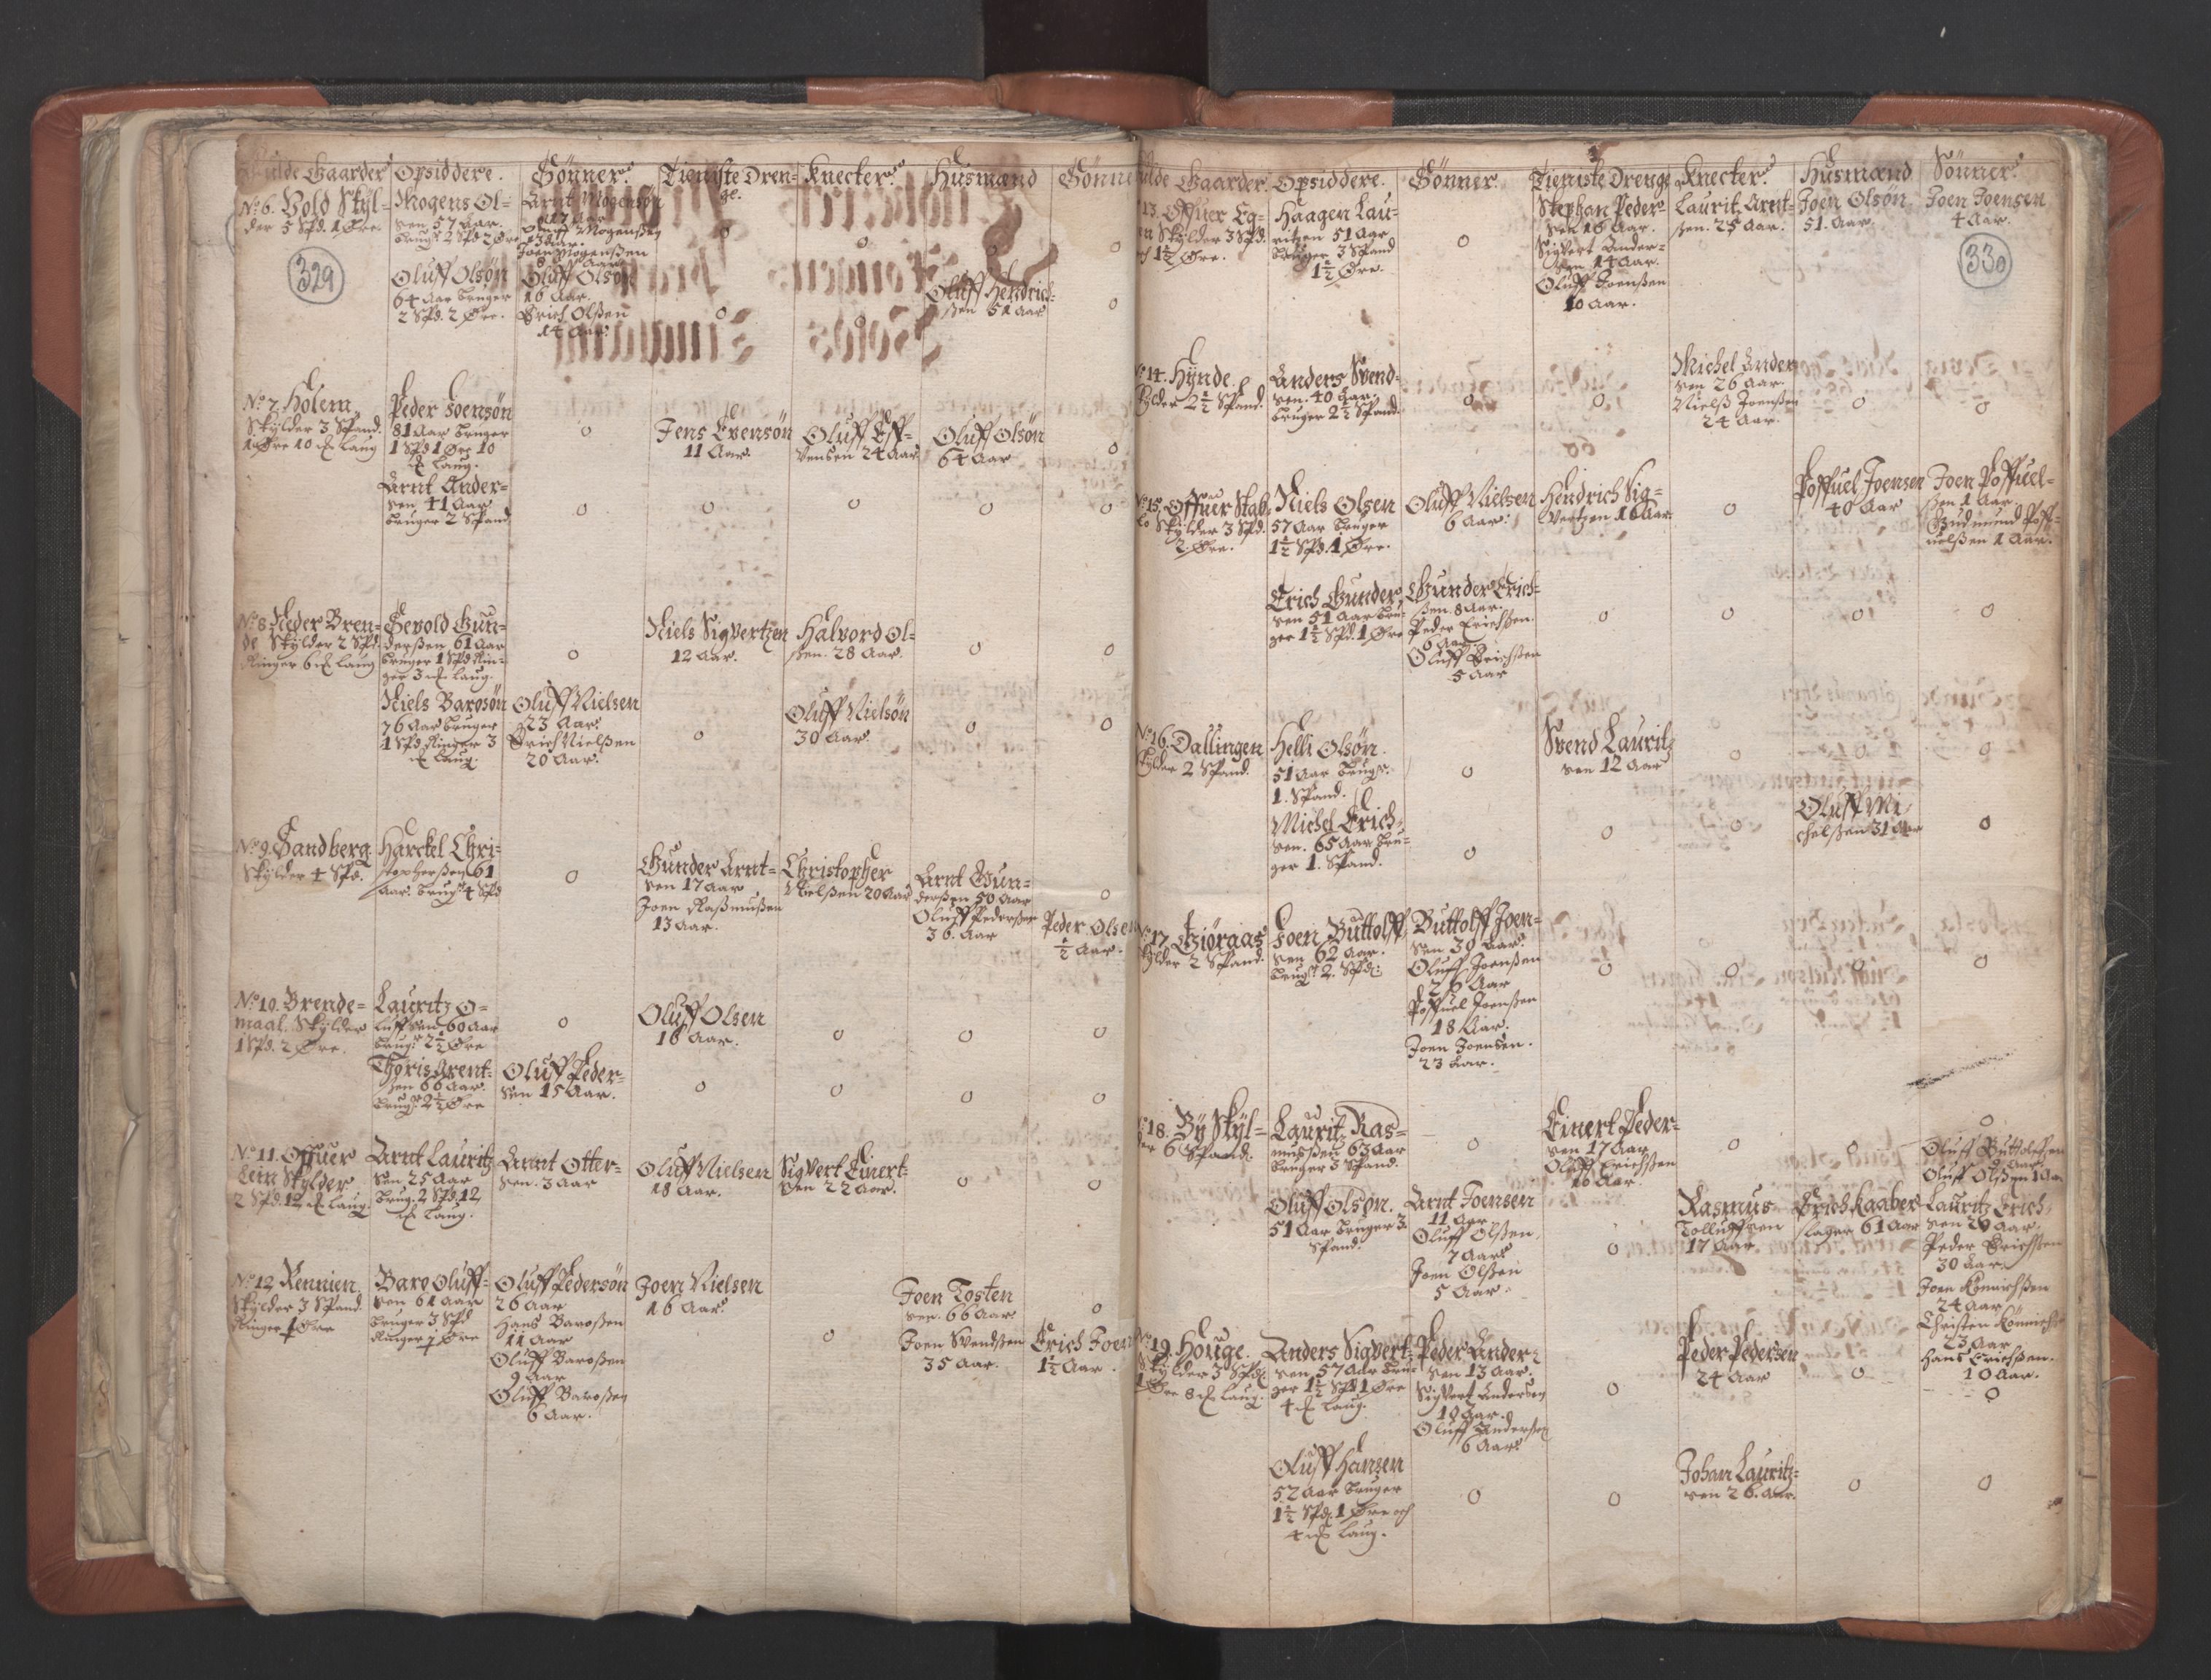 329
Fulde Gaarder Opsiddere. Sönner. Tieniste Dren= Knecter. Husmænd Sönne
ge.
No. 6. Bold Skÿl=
der 5 Spd. 1 Øre.
Mogens Ol=
sen 57 Aar.
brugr 2 Spd 2 Øre
Arnt Mogensøn
17 Aar
Oluff Mogenßen
13 Aar.
Joen Mogenßen
8 Aar
o
o
o
Oluff Olsøn
64 Aar bruger
2 Spd. 2 Øre.
Oluff Olsøn
16 Aar.
Erich Olßen
14 Aar.
o
o
Oluff Hendrich=
ßen 51 Aar
o
No. 7. Holem
Skÿlder 3 Spand.
1 Øre 10 Laug
Peder Joensøn
81 Aar bruger
1 Spd 1 Øre 10
Laug.
o
Jens Evensøn
11 Aar.
Oluff Eff=
vensen 24 Aar
Oluff Olsøn
64 Aar
o
Arnt Ander=
sen 41 Aar
bruger 2 Spand
o
o
o
o
o
No. 8. Neder Bren=
de Skÿlder 2 Spd.
Ringer 6 Laug
Sevold Gun=
derßen 61 Aar
bruger 1 Spd Rin=
ger 3 Laug.
o
Niels Sigvertzen
12 Aar.
Halvord Ol=
ßen. 28 Aar.
o
o
Niels Barosøn
76 Aar bruger
1 Spd Ringer 3
Laug.
Oluff Nielsen
23 Aar
Erich Nielßen
20 Aar.
o
Oluff Nielsøn
30 Aar
o
o
No. 9. Sandberg
Skÿlder 4 Spd.
Harckel Chri=
stopherßen 61
Aar. brugr 4 Spd
o
Gunder Arnt=
sen 17 Aar
Joen Raßmußen
13 Aar.
Christopher
Nielßen 20 Aar
Arnt Gun=
derßen 50 Aar
Oluff Pederßen
36. Aar
o
Peder Olsen
½ Aar.
No. 10. Brende=
maal. Skÿlder
1 Spd. 2 Øre.
Lauritz O=
luffsen 60 Aar
brugr 2½ Øre
o
Oluff Olsen
16 Aar.
o
o
o
Thoris Arent=
sen 66 Aar.
brugr 2½ Øre
Oluff Peder=
sen 15 Aar.
o
o
o
o
No. 11. Offuer
Lein Skÿlder
2 Spd. 12 Laug.
Arnt Lauritz
sen 25 Aar
brug. 2 Spd. 12
Laug.
Arnt Otter=
sen. 3 Aar
Oluff Nielsen
18 Aar.
Sigvert Einert=
sen 22 Aar.
o
o
No. 12 Rennien.
Skÿlder 3 Spand.
Ringer 1 Øre
Baro Oluff=
sen 61 Aar
bruger 3 Spd
Ringer 1 Øre
Oluff Pedersøn
26 Aar
Hans Baroßen
11 Aar
Oluff Baroßen
9 Aar
Oluff Baroßen
6 Aar.
Joen Nielsen
16 Aar
o
Joen Tosten
sen. 66 Aar.
Joen Svendßen
35 Aar.
o
Erich Joen
1½ Aar.
330
Fulde Gaarder. Opsiddere. Sönner. Tieniste Drenge Knecter. Husmænd Sönner.
13. Offuer Eg=
Skÿlder 3 Spd.
1½ Øre.
Haagen Lau=
ritzen 51 Aar
bruger 3 Spand
1½ Øre.
o
Stephan Peder=
sen 16 Aar.
Sigvert Ander=
sen 14 Aar.
Oluff Joenßen
10 Aar.
Lauritz Arnt=
ßen. 25 Aar.
Joen Olsøn
51. Aar.
Joen Joensen
4 Aar.
No. 14. Hÿnde.
Skÿlder 2½ Spand.
Anders Svend=
sen. 40 Aar.
bruger 2½ Spand
o
o
Michel Ander
sen 26 Aar.
Nielß Joenßen
24 Aar.
o
o
No. 15. Offuer Stab=
Skÿlder 3 Spd.
2. Øre.
Niels Olsen
57 Aar bruger
1½ Spd. 1 Øre.
Oluff Nielsen
6 Aar.
Hendrich Sig=
vertzen 16 Aar
o
Poffuel Joensen
40 Aar
Joen Poffuel=
ßen 1 Aar.
Gudmund Poff=
uelßen 1 Aar.
Erich Gunder
sen 51 Aar bru=
ger 1½ Spd. 1 Øre
Gunder Erich=
ßen. 8 Aar.
Peder Erichßen.
6 Aar.
Oluff Erichßen
5 Aar
o
o
o
o
No. 16. Dallingen
Skÿlder 2 Spand.
Helli Olsøn.
51 Aar brugr.
1. Spand.
o
Svend Lauritz
sen 12 Aar
o
Michel Erich=
sen. 65 Aar bru=
ger 1. Spand.
o
o
o
Oluff Mi=
chelßen 31 Aar
o
No. 17. Giøraas
Skÿlder 2 Spand.
Joen Buttolff
sen 62 Aar.
brugr 2. Spd.
Buttolff Joen=
sen. 30 Aar.
Oluff Joenßen
26 Aar
Poffuel Joenßen
18 Aar.
Joen Joensen.
23 Aar.
o
o
o
o
No. 18. Bÿ Skÿl=
der 6 Spand.
Lauritz Ras=
mußen 63 Aar
bruger 3 Spand.
o
Einert Peder=
sen 17 Aar
Oluff Erichßen
16 Aar
o
o
o
Oluff Olsøn.
51 Aar bruger 3
Spand.
Arnt Joensen
11 Aar
Oluff Olßen
7 Aar
Joen Olßen
5 Aar.
o
Rasmus
Tolluffsen
17 Aar
Erich Kaaber
slager 61 Aar
Oluff Buttolffsen
Aar.
Oluff Olßen
Lauritz Erich=
sen 20 Aar.
Peder Erichßen
30 Aar.
24 Aar
Christen
23 Aar
Hans Erichßen.
10 Aar.
No. 19. Houge.
Skÿlder 3 Spd.
1 Øre 8 Laug.
Anders Sigvert=
sen 57 Aar bru=
ger 1½ Spd 1 Øre
4 Laug.
Peder Ander=
sen 13 Aar.
Sigvert Andersen
10 Aar.
Oluff Andersen
6 Aar
o
Peder Pedersen
24 Aar
o
o
Oluff Hansen
52 Aar bruger
1½ Spd. 1 Øre och
4 Laug.
o
o
Johan Lauritz=
sen 26. Aar.
o
o